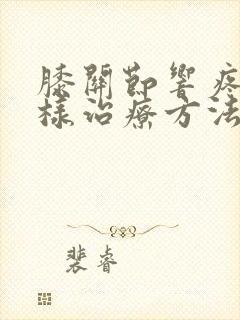 膝關節響疼
樣治療方法
裴睿